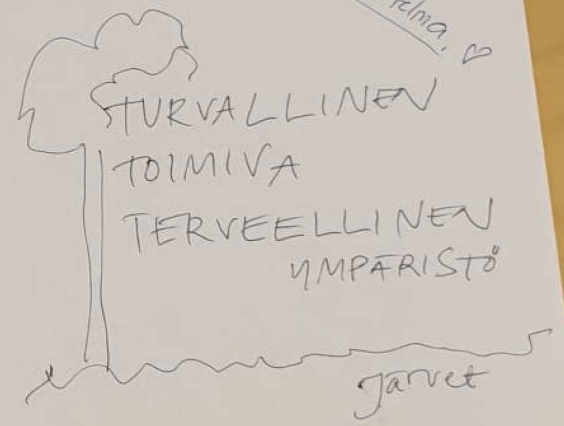 TURVALLINEN
TOIMIVA
TERVEELLINEN
YMPÄRISTÖ
Järvet